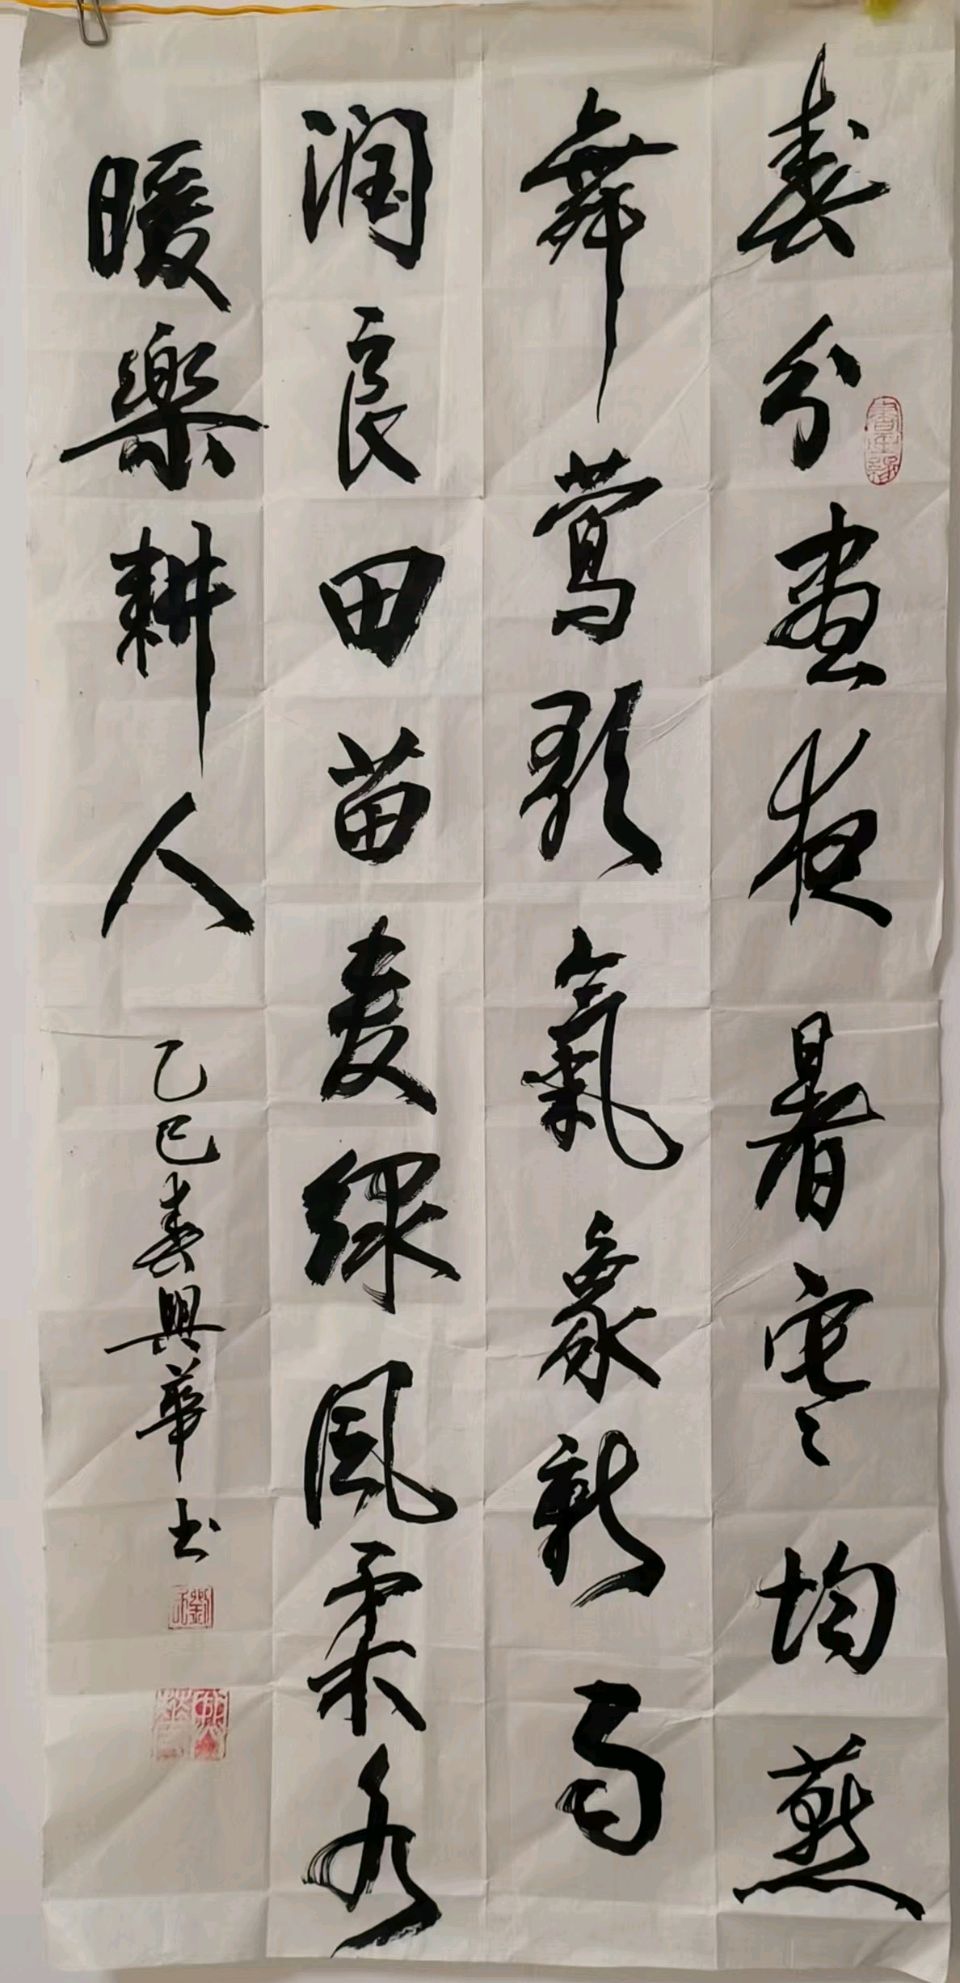 春分晝夜暑寒均燕
舞鶯歌氣象新雨
潤良田苗麦緑風柔水
暖樂耕人
乙巳春興華书